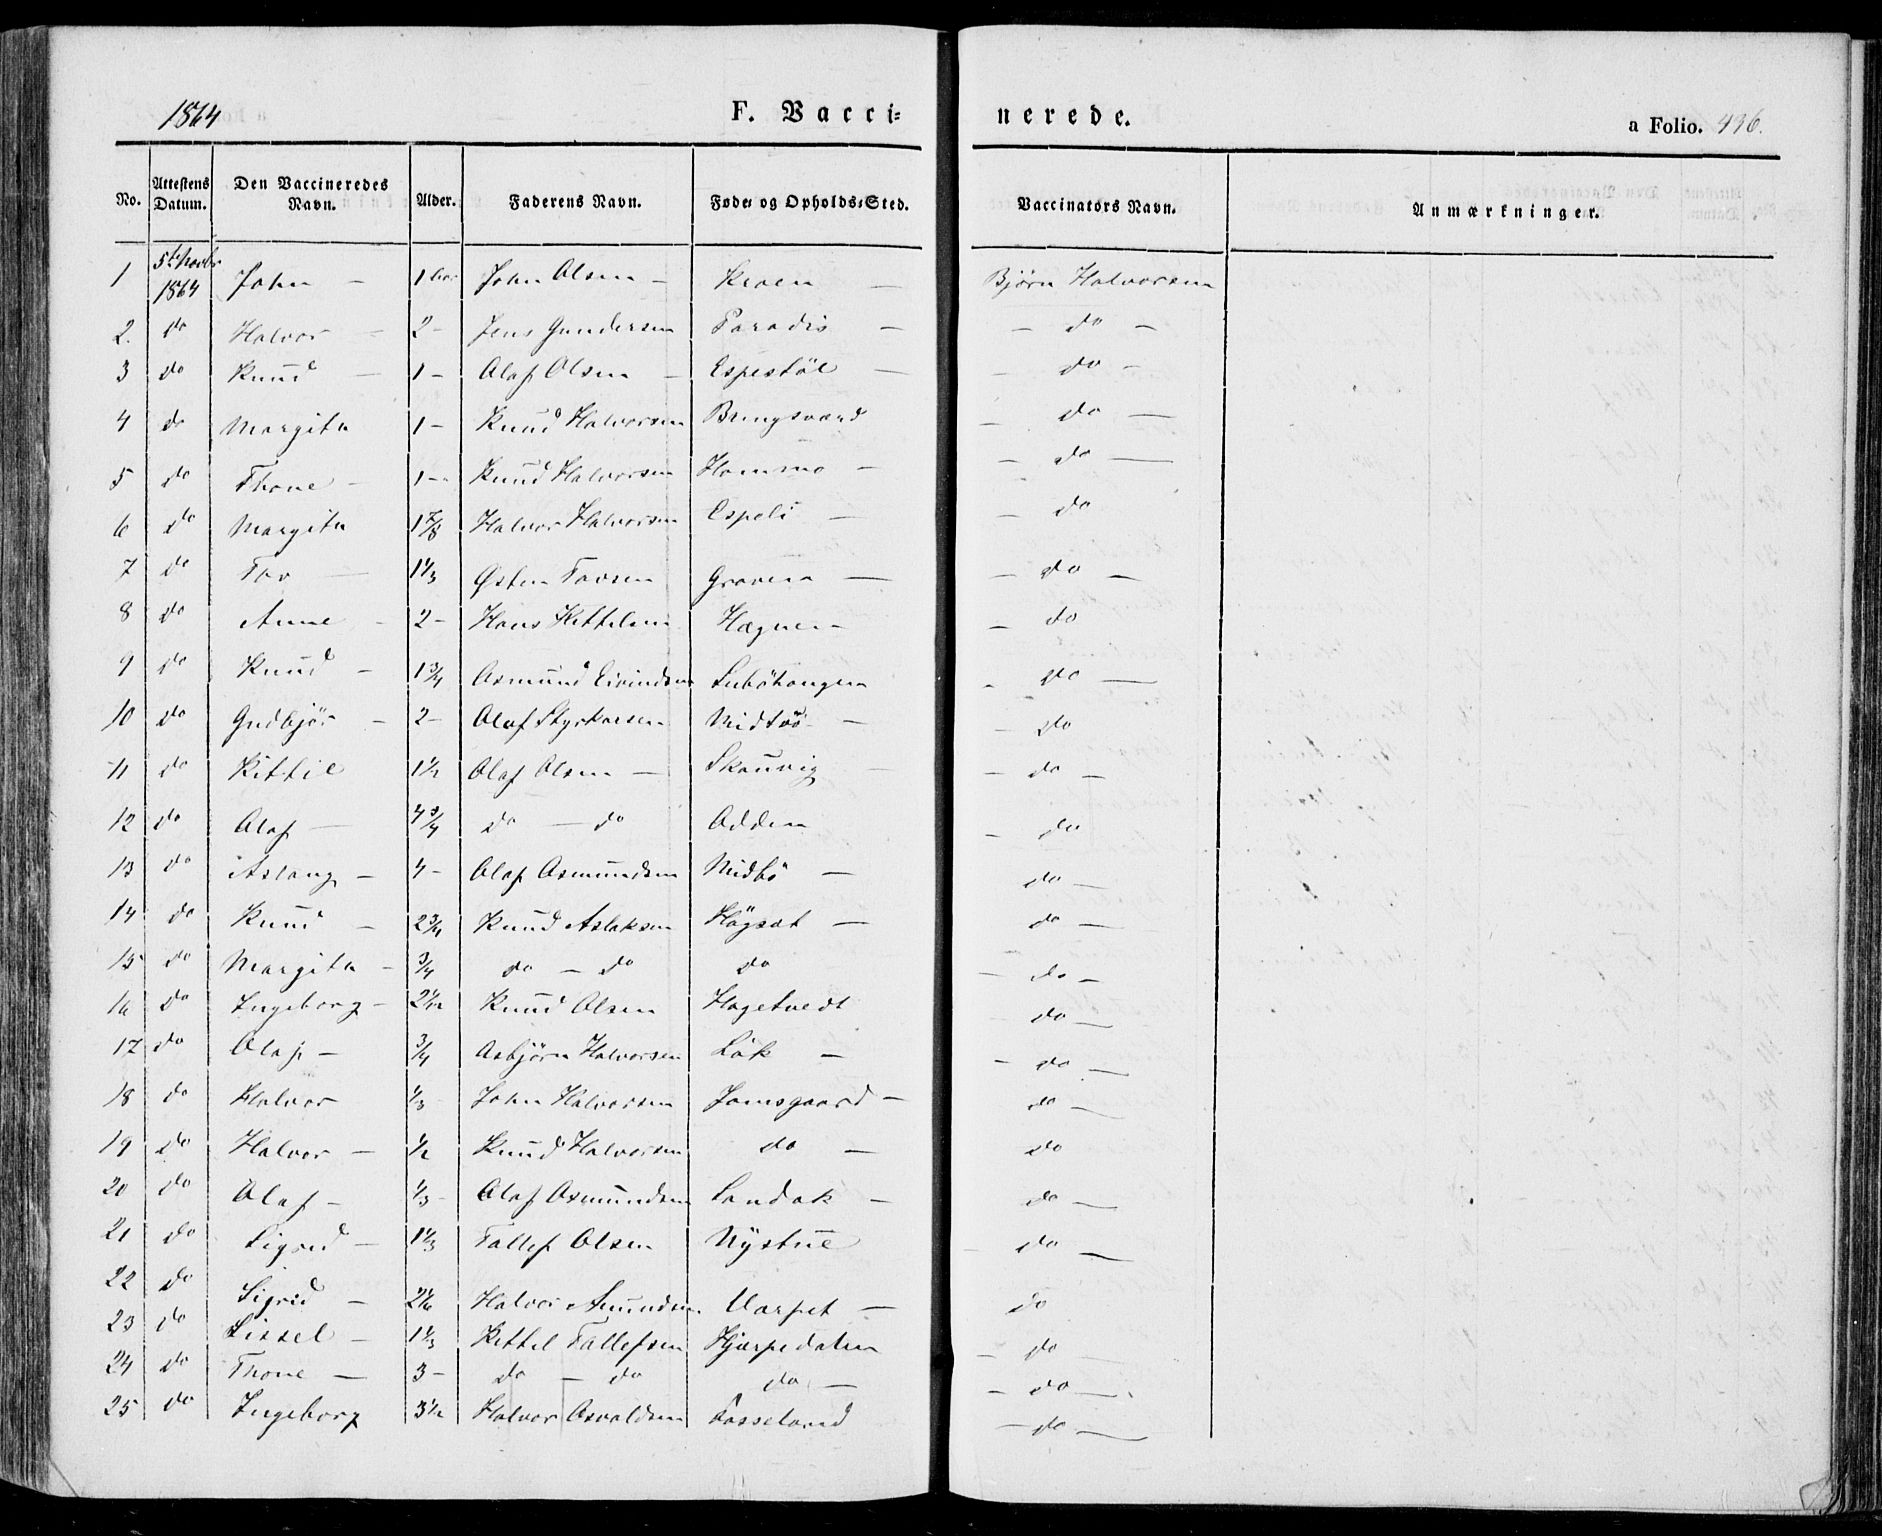 1864 F. Vacci= nerede. a Folio. 436.
No. Attestens Datum. Den Vaccineredes Navn. Alder. Faderens Navn. Føde= og Opholds=Sted. Vaccinators Navn. Anmærkninger.
1 5te Novbr 1864 John — 1 John Olsen — Kroen — Bjørn Halvorsen
2. do Halvor — 2 — Jens Gundersen Paradis — — do —
3 do Knud — 1 — Olaf Olsen — Espestöl — — do —
4 do Margita 1 — Knud Halvorsen Bringsværd — do —
5 do Thone — 1 — Knud Halvorsen Hommo — — do —
6 do Margita 1 7/8 Halvor Halvorsen Espeli — — do
7 do Tov — 1 1/3 Østen Tovsen Graven — — do —
8 do Anne — 2 — Hans Kittelsen Hægnen — — do
9 do Knud — 1 3/4 Asmund Eivindsen Luböhaugen — do —
10 do Gudbjör — 2 — Olaf Styrkarsen Midtbö — — do
11 do Kittil 1 1/2 Olaf Olsen — Skouvig — — do —
12 do Olaf — 4 3/4 do — do Odden — do
13 do Aslaug — 4 — Olaf Asmundsen Midbö — do —
14 do Knud — 2 3/4 Knud Aslaksen Högsat — do —
15 do Margita — 3/4 do — do do — do —
16 do Ingeborg — 2 1/2 Knud Olsen Hagetvedt — do —
17 do Olaf — 3/4 Asbjörn Halvorsen Lök — — do —
18 do Halvor 1/3 John Halvorsen Jamsgaard — — do —
19 do Halvor — 1/2 Knud Halvorsen do — do
20 do Olaf — 1/3 Olaf Asmundsen Landsk — do —
21 do Sigrid — 1 1/3 Tallef Olsen Nystue — do —
22 do Sigrid — 2 1/6 Halvor Amundsen Varpet — do
23 do Sissel — 1 1/3 Kittel Tallefsen Hjærpedalen — do —
24 do Thone — 3 — do — do do — — do —
25 do Ingeborg 3 1/2 Halvor Osvaldsen Fosseland — do —